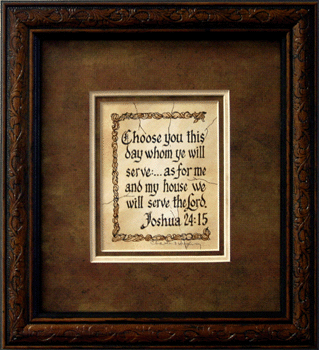 Choose you this
day whom ye will
serve:...as for me
and my house we
will serve the Lord.
Joshua 24:15